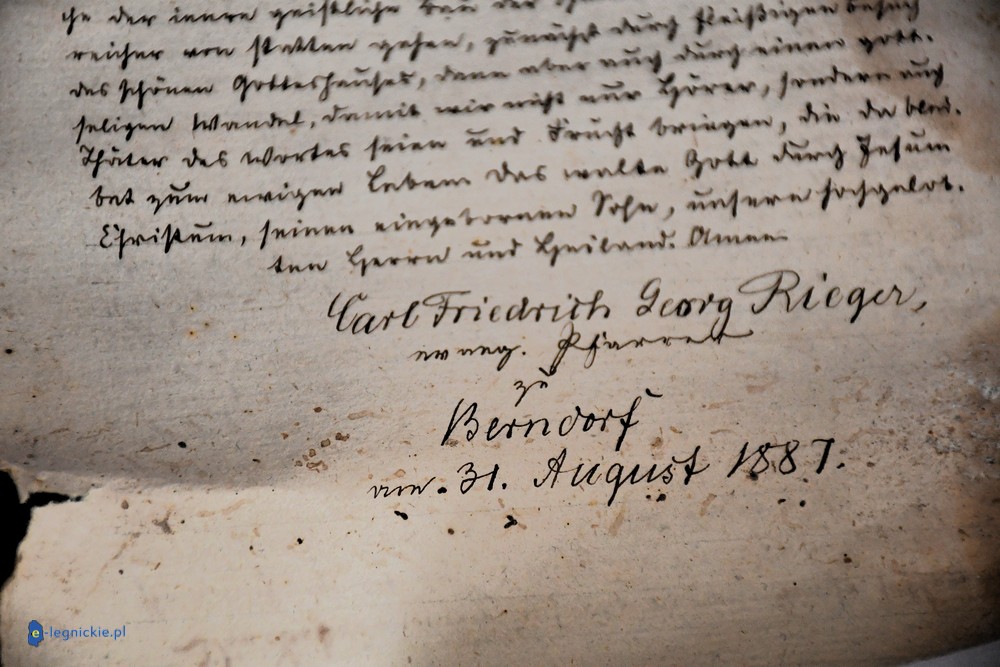 che der innre geistliche Bau der
reicher von statten gehen, zunächst durch fleißigen Besuch
des schönen Gotteshauses, dann aber auch durch einen gott-
seligen Wandel, damit wir nicht nur Hörer, sondern auch
Thäter des Wortes seien und Frucht bringen, die da blei-
bet zum ewigen Leben. Das walte Gott durch Jesum
Christum, seinen eingebornen Sohn, unsern hochgelob-
ten Herrn und Heiland. Amen
Carl Friedrich Georg Rieger,
evang. Pfarrer
zu
Berndorf
am 31. August 1887.
e-legnickie.pl